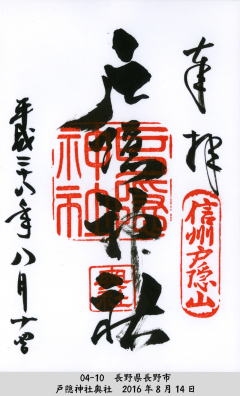 奉拝
信州戸隠山
戸隠神社
戸隠神社
奥社
平成二十八年八月十四日
04-10 長野県長野市
戸隠神社奥社 2016年8月14日